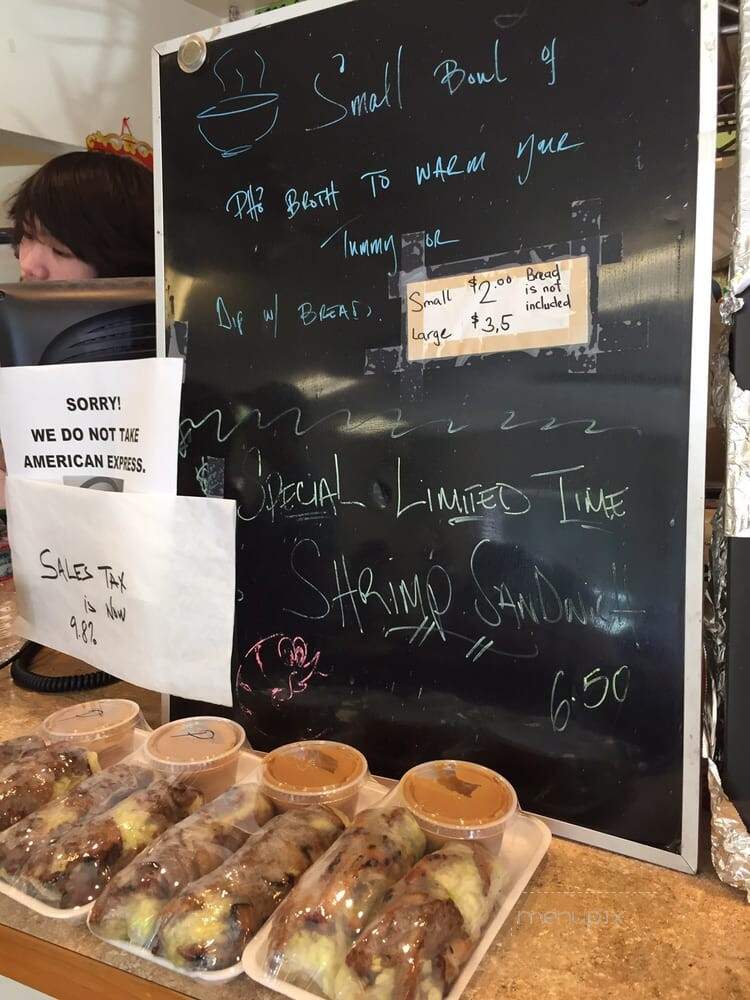 Small Bowl of
PHỞ BROTH TO WARM YOUR
Tummy OR
DIP W/ BREAD.
Small $2.00 Bread is not included
Large $3,5
SORRY!
WE DO NOT TAKE
AMERICAN EXPRESS.
SALES TAX
is Now
9.8%
SPECIAL LIMITED TIME
SHRIMP SANDWICH
6.50
menupix